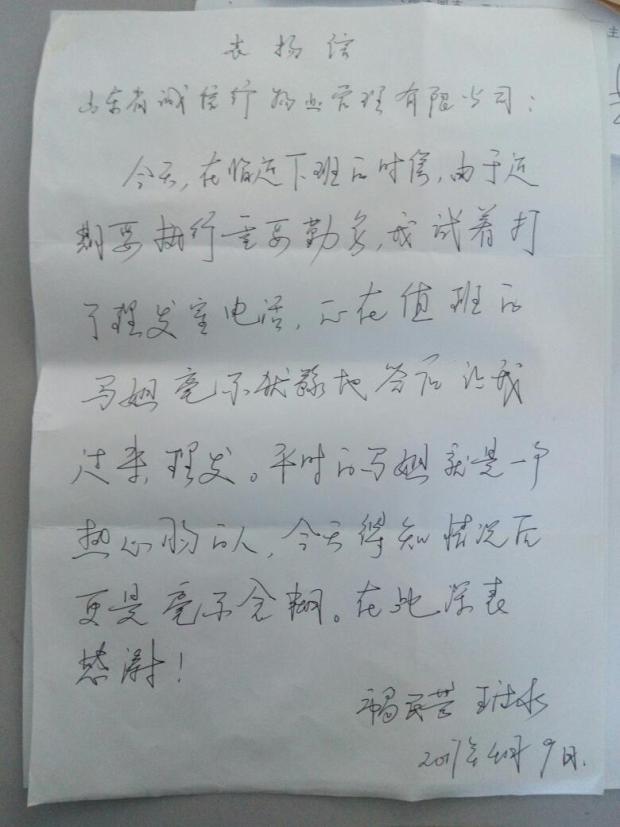 表扬信
山东省诚信行物业管理有限公司：
今天，在临近下班的时候，由于近
期要执行重要勤务，我试着打
了理发室电话，正在值班的
马姐毫不犹豫地答应让我
过来理发。平时的马姐就是一个
热心肠的人，今天得知情况后
更是毫不含糊。在此深表
感谢！
2017年 月9日